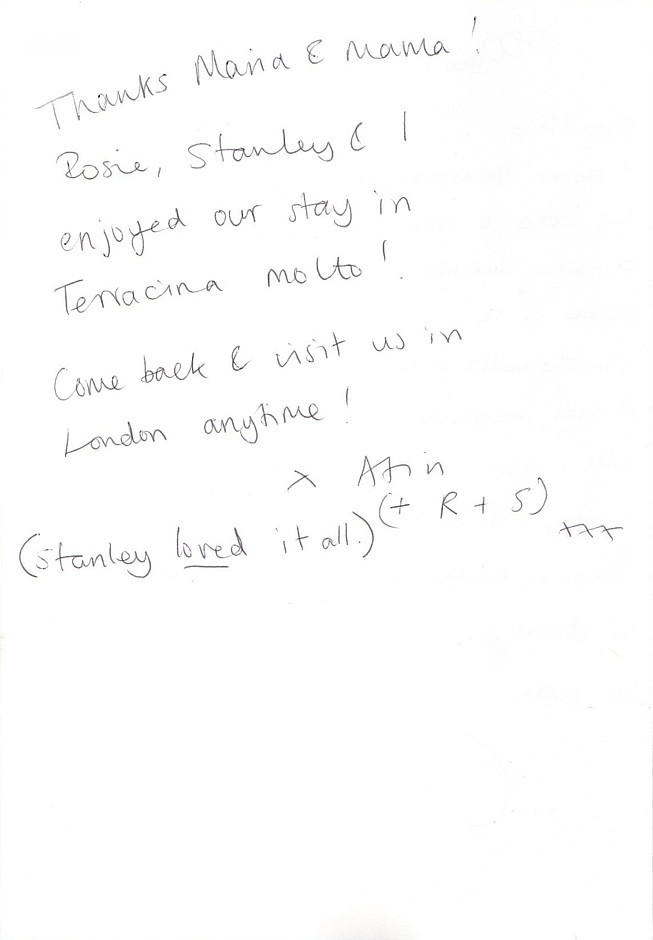 Thanks Maria & Mama!
Rosie, Stanley & I
enjoyed our stay in
Terracina molto!
Come back & visit us in
London anytime!
x
(+ R + S)
(Stanley loved it all.) xxx